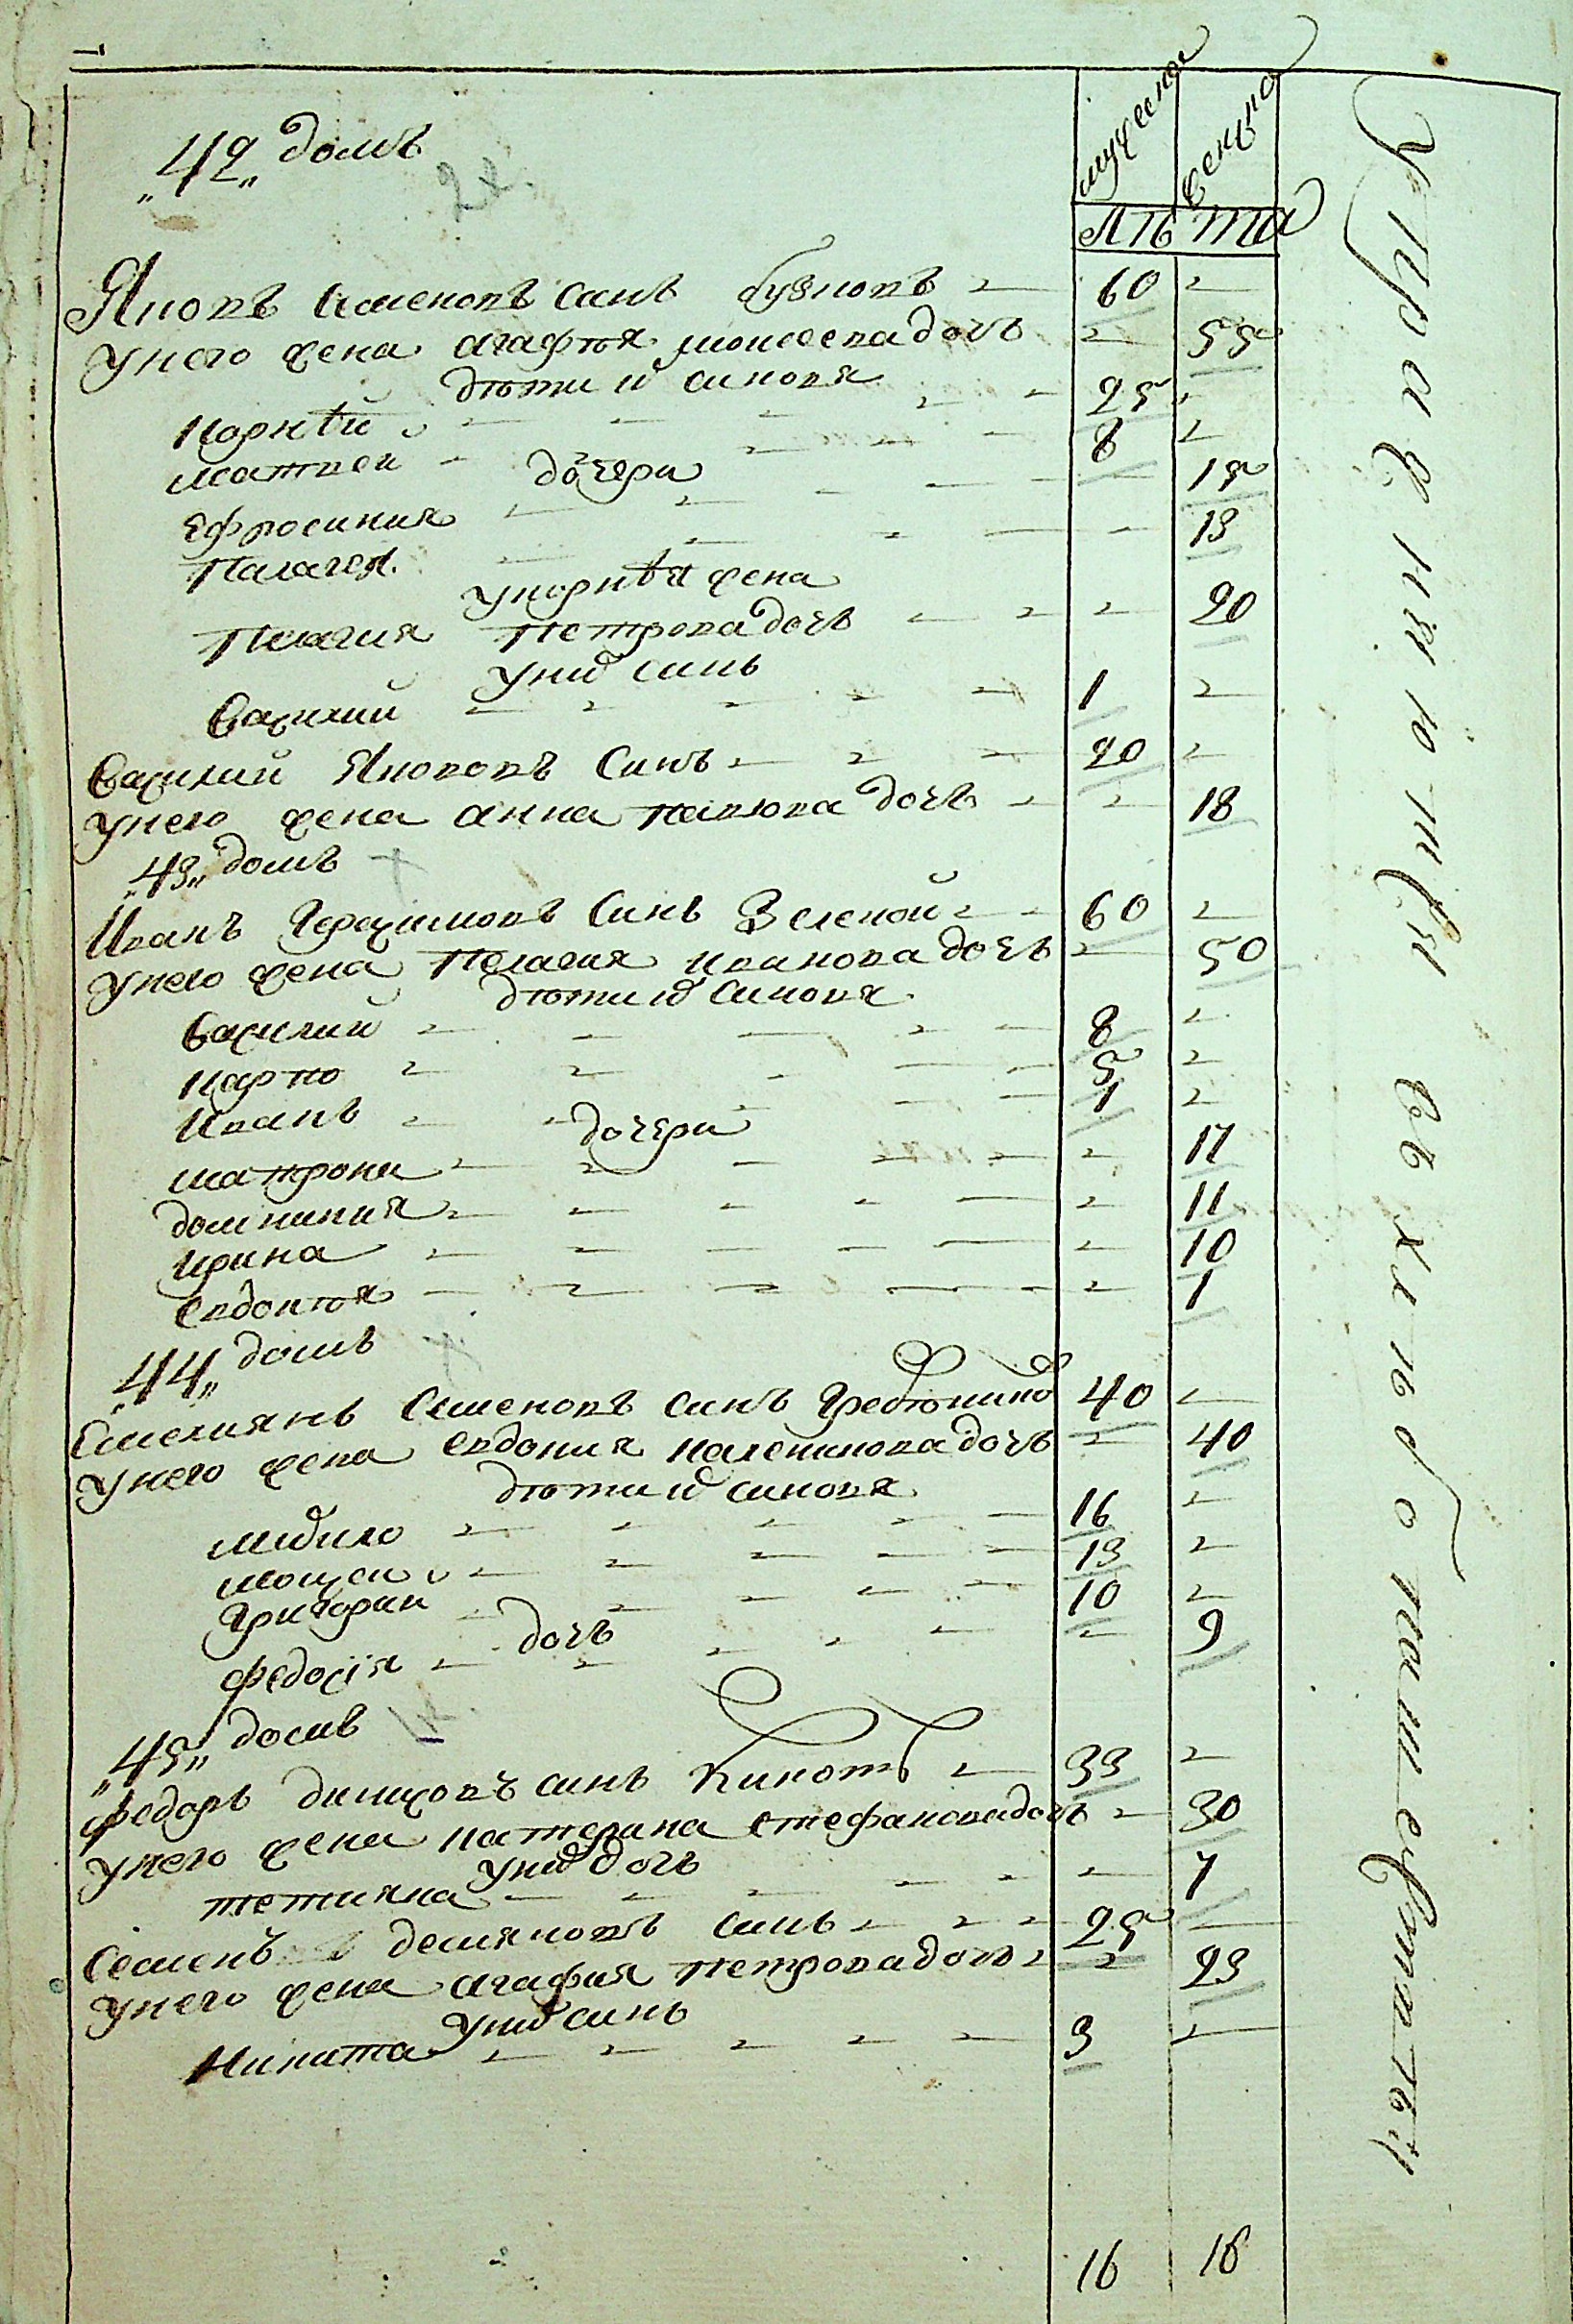 мужеска женска
лѣта
„42„ домъ
Яковъ Семеновъ синъ Бузновъ 60
У него жена Агафія Моисеева дочь 55
дѣти их синовя
Корнѣй 25
Матвей 8
дочери
Ефросиния 15
Палагея 13
У Корнѣя жена
Пелагия Петрова дочь 20
У них синъ
Василий 1
Василий Якововъ синъ 20
У него жена Анна Павлова дочь 18
„43„ домъ
Иванъ Герасимовъ синъ Зеленой 60
У него жена Пелагия Иванова дочь 50
дѣти их синовя
Василий 8
Карпо 5
Иванъ 1
дочери
Матрона 17
Домникия 11
Ирина 10
Евдокѣя 1
„44„ домъ
Емелиянъ Семеновъ синъ 40
У него жена Евдокия Каленикова дочь 40
дѣти их синовя
Михайло 16
Мойсей 13
Григорий 10
дочь
Федосія 9
„45„ домъ
Федоръ синъ 33
У него жена Катерина Стефанова дочь 30
У них дочь
Тетияна 7
Семенъ Демяновъ синъ 25
У него жена Агафия Петрова дочь 23
У них синъ
Никита 3
16 16
упражняются въ хлѣбопашествѣ